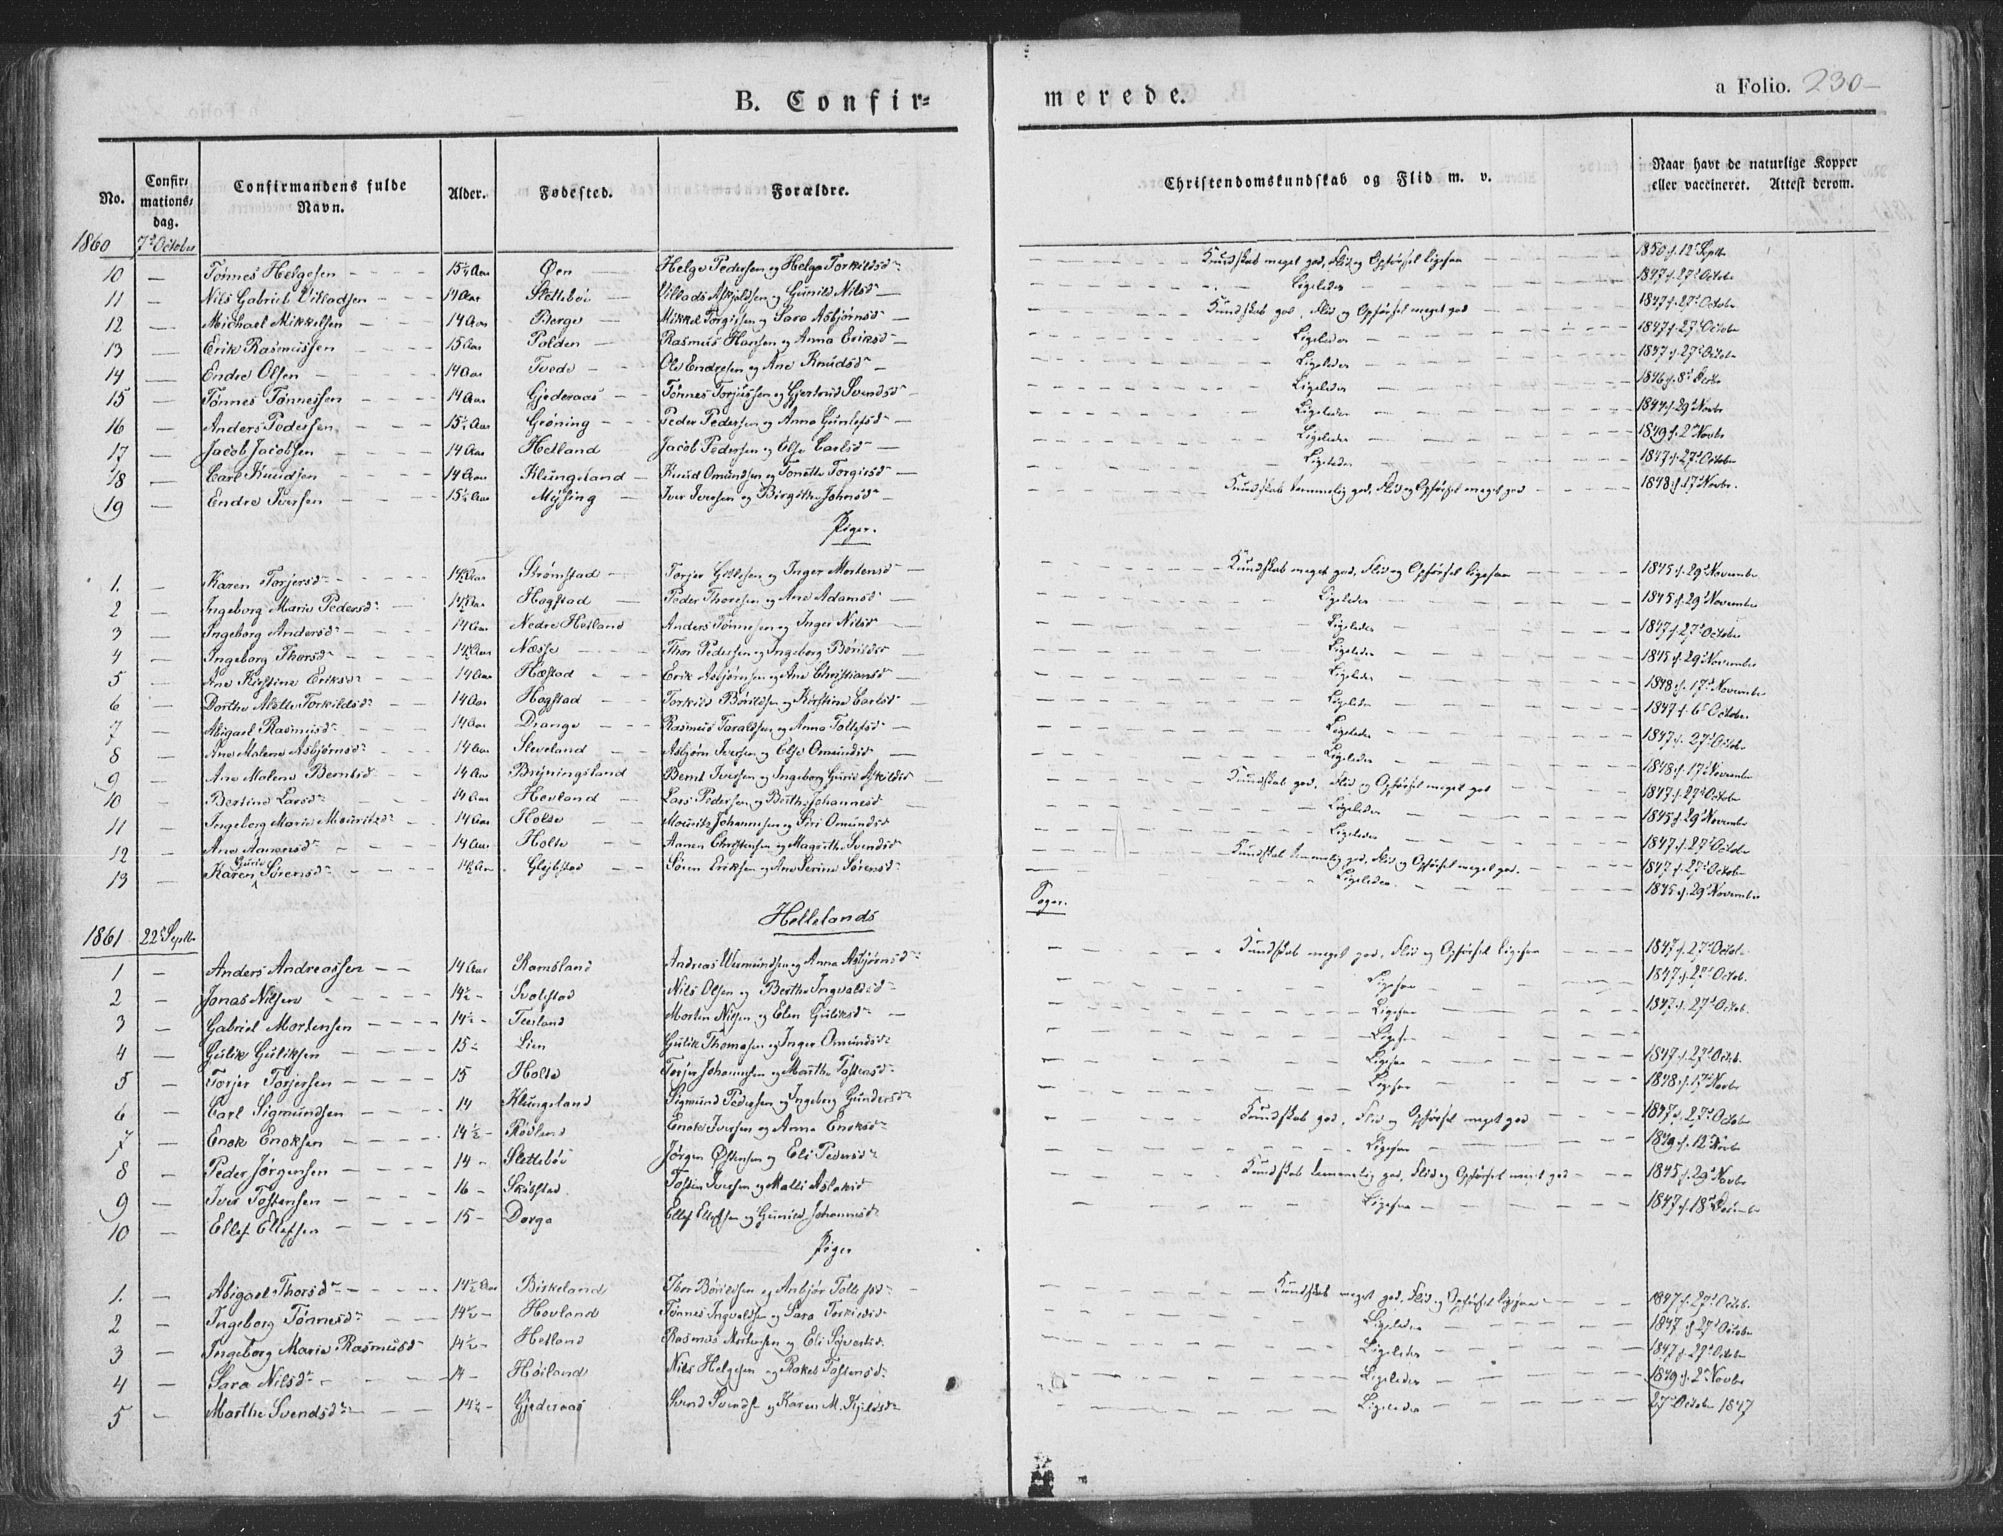 B. Confir=
merede.
a Folio. 230-
No. Confir-mations-dag. Confirmandens fulde Navn. Alder. Fødested. Forældre. Christendomskundskab og Flid m. v. Naar havt de naturlige Kopper eller vaccineret. Attest derom.
1860 7d October
10 — Tønnes Helgesen 15½ Aar Øen Helge Pedersen og Helga Torkildsd Kundskab meget god, Flid og Opførsel ligesaa 1850 d. 12t Septb
11 — Nils Gabriel Villadsen 14 Aar Slettebø Villads Askjeldsen og Gunild Nilsd Ligeledes 1847 d. 27d Octobr
12 — Michael Mikkelsen 14 Aar Berge Mikkel Torgersen og Sara Asbjørnsd Kundskab god, Flid og Opførsel meget god 1847 d. 27d Octobr
13 — Erik Rasmussen 15 Aar Polden Rasmus Hansen og Anna Eriksd Ligeledes 1847 d. 27d Octobr
14 — Endre Olsen 14 Aar Tvede Ole Endresen og Ane Knudsd Ligeledes 1847 d. 27d Octobr
15 — Tønnes Tønnessen 14 Aar Gjederaas Tønnes Torjussen og Gjertrud Svendsd Ligeledes 1846 d. 8d
16 — Anders Pedersen 15½ Aar Grøning Peder Pedersen og Anna Gunlefsd Ligeledes 1844 d. 29d Novbr
17 — Jacob Jacobsen 14 Aar Hetland Jacob Pedersen og Else Carlsd Ligeledes 1849 d. 2d Novbr
18 — Carl Knudsen 14 Aar Klungeland Knud Omundsen og Tonette Torgersd Ligeledes 1847 d. 27d October
19 — Endre Iversen 15½ Aar Mysing Iver Iversen og Birgithe Johnsd Kundskab temmelig god, Flid og Opførsel meget god 1848 d. 17d Novbr.
Piger.
1. — Karen Torjersd 14½ Aar Strømstad Torjer Gulliksen og Inger Mortensd Kundskab meget god, Flid og Opførsel ligesaa 1845 d. 29d Novembr
2 — Ingeborg Marie Pedersd 14½ Aar Hogstad Peder Thorsen og Ane Adamsd Ligeledes 1845 d. 29d November
3 — Ingeborg Andersd 14 Aar Nedre Hetland Anders Tønnesen og Inger Nilsd Ligeledes 1847 d. 27d Octobr
4 — Ingeborg Thorsd 14½ Aar Næsse Thor Pedersen og Ingeborg Børildsd Ligeledes 1845 d. 29d November
5 — Ane Kirstine Eriksd 14 Aar Hæstad Erik Asbjørnsen og Ane Christiansd Ligeledes 1848 d. 17d November
6 — Dorthe Alette Torkildsd 14 Aar Hogstad Torkild Børildsen og Kirstine Carlsd Ligeledes 1847 d. 6d October
7 — Abigael Rasmusd 14 Aar Drange Rasmus Taraldsen og Anna Tollefsd Ligeledes 1847 d. 27d Octobr
8 — Ane Malene Asbjørnsd 14 Aar Sleveland Asbjørn Iversen og Else Omundsd Ligeledes 1848 d. 17d November
9 — Ane Malene Berntsd 14 Aar Bryningsland Bernt Iversen og Ingeborg Gurie Askildsd Kundskab god, Flid og Opførsel meget god 1847 d. 27d Octobr
10 — Bertine Larsd 14 Aar Hovland Lars Pedersen og Berthe Johannesd Ligeledes 1845 d. 29d Novembr
11 — Ingeborg Marie Mauritsd 14 Aar Holte Mourits Johannesen og Siri Omundsd Ligeledes 1847 d. 27d Octobr
12 — Ane Aanensd 14 Aar Holte Aanen Christensen og Magrethe Svendsd Kundskab temmelig god, Flid og Opførsel meget god. 1847 d. 27d Octobr
13 — Karen Gurie Sørensd 14½ Aar Gljbstad Søren Eriksen og Ane Serine Sørensd Ligeledes 1845 d. 29d November
Hellelands
Sogn.
1861 22d Septbr
1 — Anders Andreassen 14 Aar Ramsland Andreas Wermundsen og Anna Asbjørnsd Kundskab meget god, Flid og Opførsel ligesaa 1847 d. 27d Octob.
2 — Jonas Nilsen 14½ - Svalestad Nils Olsen og Berthe Ingvaldsd Ligesaa 1847 d. 27d Octob.
3 — Gabriel Mortensen 14½ - Terland Morten Nilsen og Elen Guliksd Ligesaa 1847 d. 27d Octob.
4 — Gulik Guliksen 15 - Lien Gulik Thomasen og Inger Omundsd Ligesaa
5 — Torjer Torjersen 15 Holte Torjer Johannesen og Marthe Tostensd Ligesaa 1847 d. 27d Octb.
6 — Carl Sigmundsen 14 Klungeland Sigmund Pedersen og Ingeborg Gundersd Ligesaa 1848 d. 17d Novbr
7 — Enok Enoksen 14½ - Røvland Enok Iversen og Anna Enoksd Kundskab god, Flid og Opførsel meget god 1847 d. 27d October
8 — Peder Jørgensen 14 - Slettebø Jørgen Østensen og Eli Pedersd Ligesaa 1849 d. 12d Novbr
9 — Iver Tostensen 16 - Skailstad Tosten Iversen og Malli Aslaksd Kundskab temmelig god, Flid og Opførsel meget god 1845 d. 29d Novbr
10 — Ellef Ellefsen 15 - Dorge Ellef Ellefsen og Gunild Johannesd Ligesaa 1847 d. 18d Decembr
Piger
1. — Abigael Thorsd 14½ Aar Birkeland Thor Børildsen og Anbjør Tollefsd Kundskab meget god, Flid og Opførsel ligesaa 1847 d. 27d Octob.
2 — Ingeborg Tønnesd 14½ - Hovland Tønnes Ingvaldsen og Sara Torkildsd Ligeledes 1847 d. 27d Octobr
3 — Ingeborg Marie Rasmusd 14½ - Hetland Rasmus Mortensen og Eli Sivertsd Ligeledes 1847 d. 27d October
4 — Sara Nilsd 14 - Høiland Nils Helgesen og Rakel Tostensd Ligeledes 1849 d. 2d Novbr
5 — Marthe Svendsd 14½ - Gjederaas Svend Svendsen og Karen M. Kjeldsd Ligeledes 27d October 1847